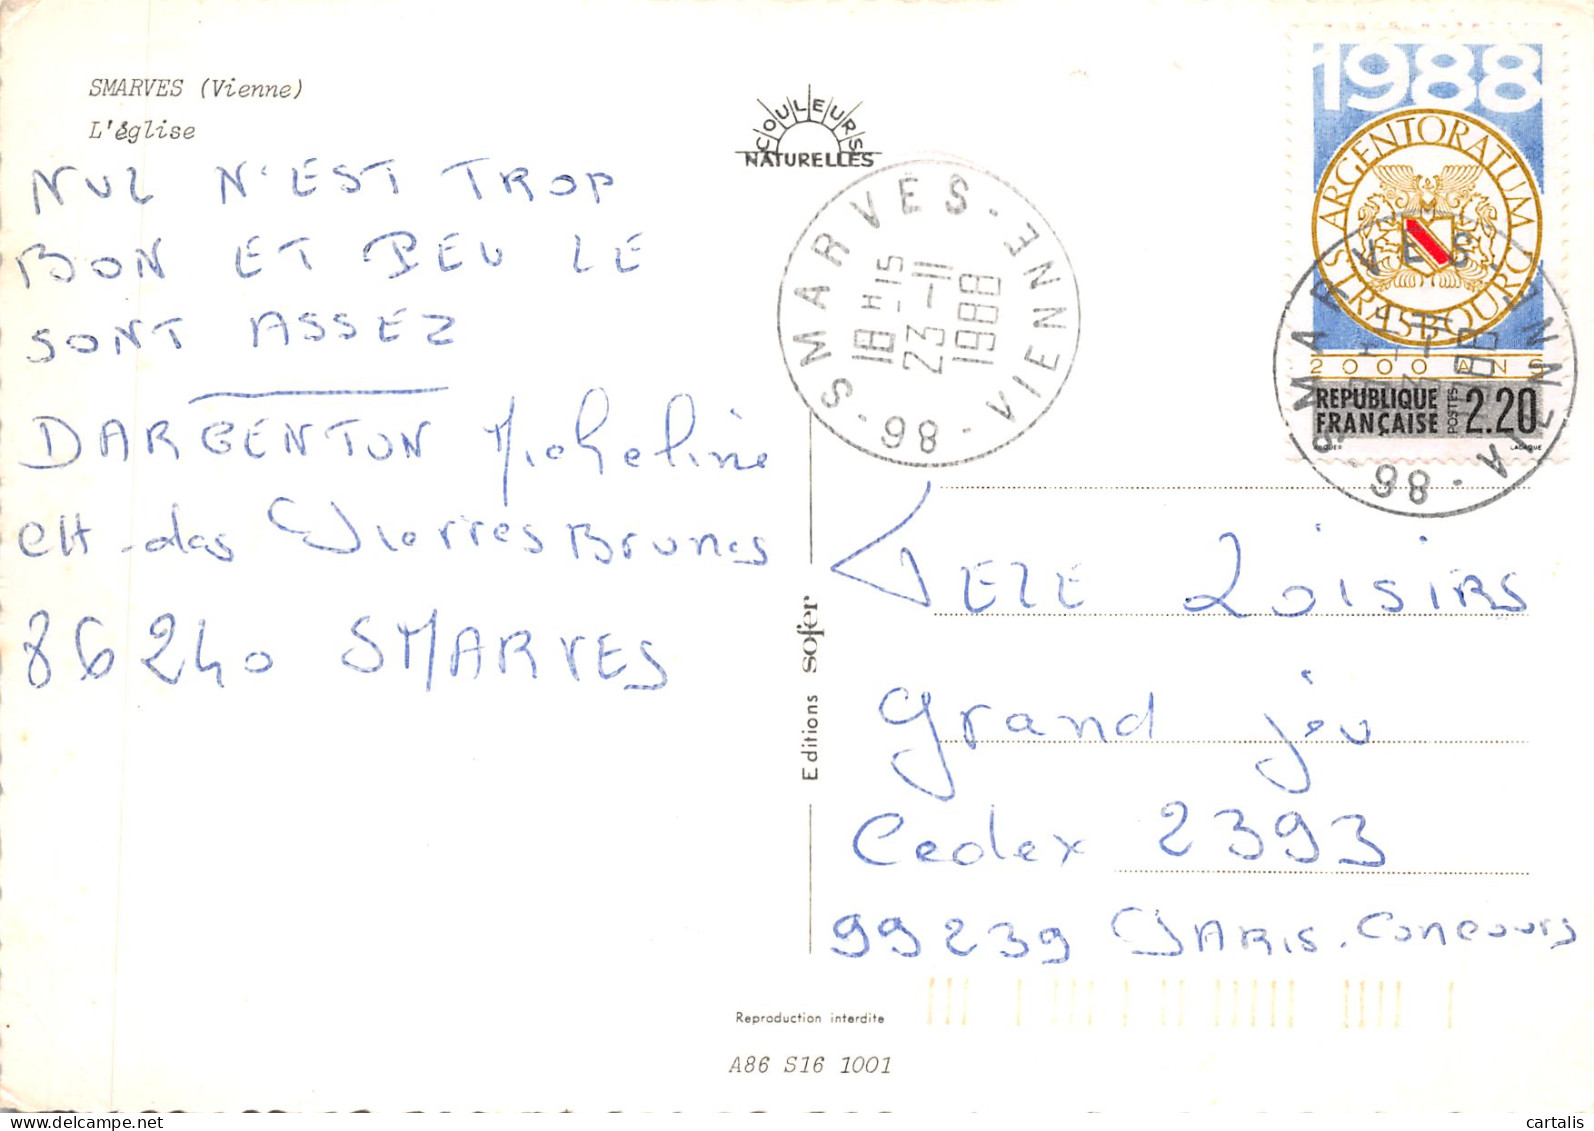 SMARVES (Vienne)
L'église
NUL N'EST TROP
BON ET PEU LE
SONT ASSEZ
DARGENTON Micheline
CH. des PierresBrunes
86240 SMARVES
COULEURS
NATURELLES
SMARVES - VIENNE
18H15
23-11
1988
98
1988
ARGENTORATUM
STRASBOURG
2000 ANS
REPUBLIQUE
FRANÇAISE
POSTES
2.20
SMARVES - VIENNE
98
TELE LOISIRS
Grand jeu
Cedex 2393
99239 PARIS. Concours
Editions sofer
Reproduction interdite
A86 S16 1001
cartalis